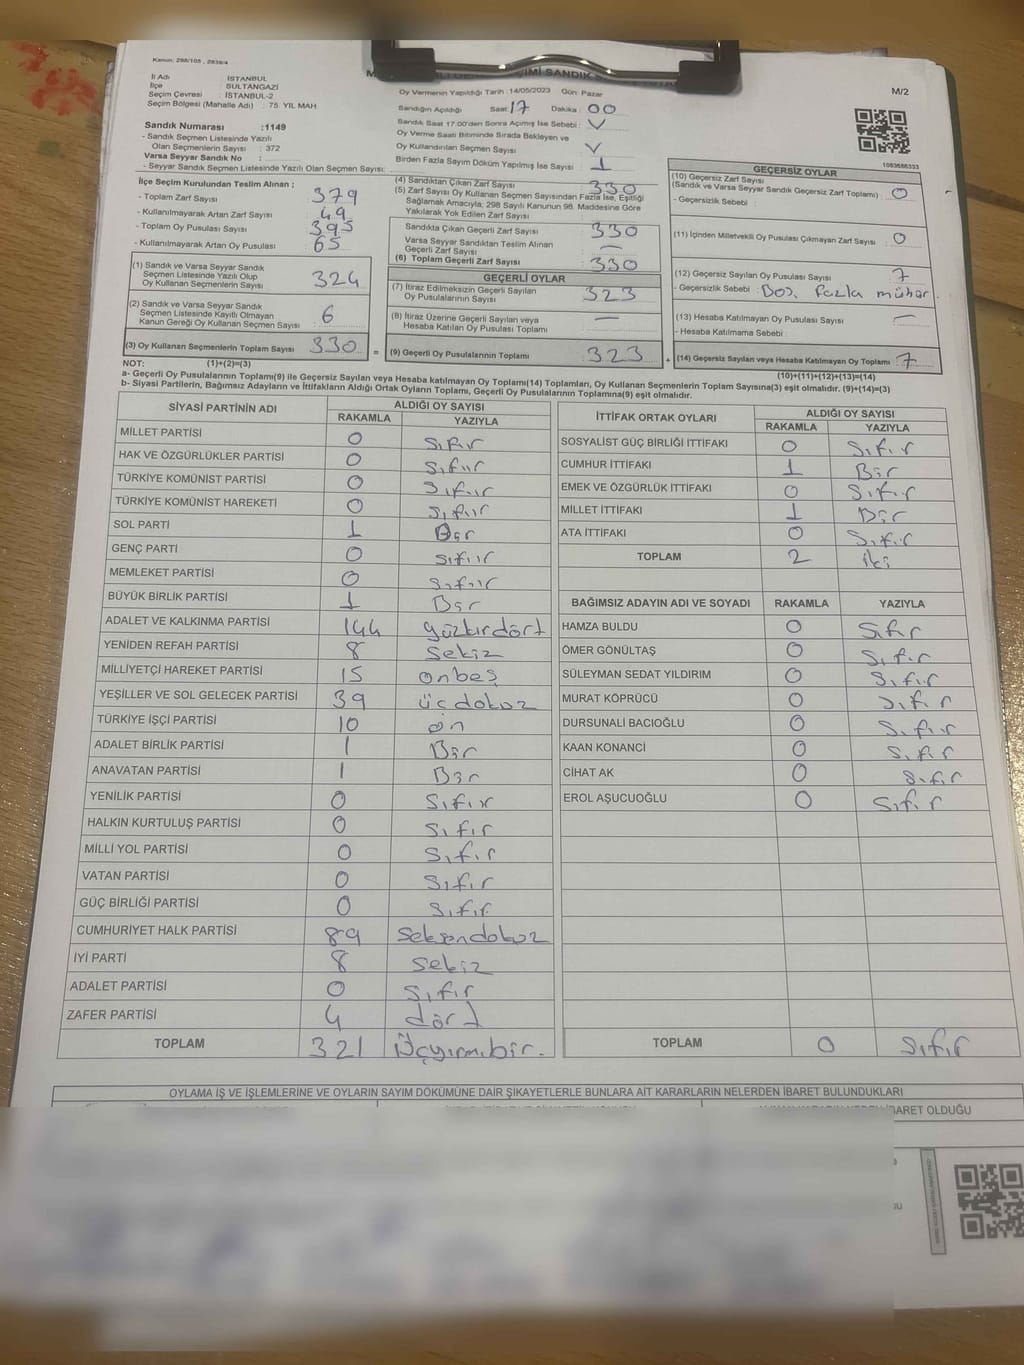 Kanun: 298/105 , 2839/4
İl Adı : İSTANBUL
İlçe : SULTANGAZİ
Seçim Çevresi : İSTANBUL-2
Seçim Bölgesi (Mahalle Adı) : 75. YIL MAH
Sandık Numarası :1149
- Sandık Seçmen Listesinde Yazılı
Olan Seçmenlerin Sayısı : 372
Varsa Seyyar Sandık No :
- Seyyar Sandık Seçmen Listesinde Yazılı Olan Seçmen Sayısı:
SEÇİMİ SANDIK
M/2
Oy Vermenin Yapıldığı Tarih :14/05/2023 Gün: Pazar
Sandığın Açıldığı Saat 17 Dakika 00
Sandık Saat 17:00'den Sonra Açımış İse Sebebi :
Oy Verme Saati Bitiminde Sırada Bekleyen ve
Oy Kullandırılan Seçmen Sayısı :
Birden Fazla Sayım Döküm Yapılmış İse Sayısı : 1
1083686333
İlçe Seçim Kurulundan Teslim Alınan ;
- Toplam Zarf Sayısı : 379
- Kullanılmayarak Artan Zarf Sayısı : 49
- Toplam Oy Pusulası Sayısı : 395
- Kullanılmayarak Artan Oy Pusulası : 65
(1) Sandık ve Varsa Seyyar Sandık
Seçmen Listesinde Yazılı Olup
Oy Kullanan Seçmenlerin Sayısı 324
(2) Sandık ve Varsa Seyyar Sandık
Seçmen Listesinde Kayıtlı Olmayan
Kanun Gereği Oy Kullanan Seçmen Sayısı 6
(3) Oy Kullanan Seçmenlerin Toplam Sayısı 330 =
(4) Sandıktan Çıkan Zarf Sayısı 330
(5) Zarf Sayısı Oy Kullanan Seçmen Sayısından Fazla İse, Eşitliği
Sağlamak Amacıyla; 298 Sayılı Kanunun 98. Maddesine Göre
Yakılarak Yok Edilen Zarf Sayısı
Sandıkta Çıkan Geçerli Zarf Sayısı 330
Varsa Seyyar Sandıktan Teslim Alınan
Geçerli Zarf Sayısı —
(6) Toplam Geçerli Zarf Sayısı 330
GEÇERLİ OYLAR
(7) İtiraz Edilmeksizin Geçerli Sayılan
Oy Pusulalarının Sayısı 323
(8) İtiraz Üzerine Geçerli Sayılan veya
Hesaba Katılan Oy Pusulası Toplamı —
(9) Geçerli Oy Pusulalarının Toplamı 323 +
GEÇERSİZ OYLAR
(10) Geçersiz Zarf Sayısı
(Sandık ve Varsa Seyyar Sandık Geçersiz Zarf Toplamı) : 0
- Geçersizlik Sebebi :
(11) İçinden Milletvekili Oy Pusulası Çıkmayan Zarf Sayısı : 0
(12) Geçersiz Sayılan Oy Pusulası Sayısı : 7
- Geçersizlik Sebebi : Boş, fazla mühür.
(13) Hesaba Katılmayan Oy Pusulası Sayısı : —
- Hesaba Katılmama Sebebi :
(14) Geçersiz Sayılan veya Hesaba Katılmayan Oy Toplamı : 7
NOT: (1)+(2)=(3) (10)+(11)+(12)+(13)=(14)
a- Geçerli Oy Pusulalarının Toplamı(9) ile Geçersiz Sayılan veya Hesaba katılmayan Oy Toplamı(14) Toplamları, Oy Kullanan Seçmenlerin Toplam Sayısına(3) eşit olmalıdır. (9)+(14)=(3)
b- Siyasi Partilerin, Bağımsız Adayların ve İttifakların Aldığı Oy Ortak Oyların Toplamı, Geçerli Oy Pusulalarının Toplamına(9) eşit olmalıdır.
SİYASİ PARTİNİN ADI ALDIĞI OY SAYISI
RAKAMLA YAZIYLA
MİLLET PARTİSİ 0 Sıfır
HAK VE ÖZGÜRLÜKLER PARTİSİ 0 Sıfır
TÜRKİYE KOMÜNİST PARTİSİ 0 Sıfır
TÜRKİYE KOMÜNİST HAREKETİ 0 Sıfır
SOL PARTİ 1 Bir
GENÇ PARTİ 0 Sıfır
MEMLEKET PARTİSİ 0 Sıfır
BÜYÜK BİRLİK PARTİSİ 1 Bir
ADALET VE KALKINMA PARTİSİ 144 yüzkırdört
YENİDEN REFAH PARTİSİ 8 Sekiz
MİLLİYETÇİ HAREKET PARTİSİ 15 onbeş
YEŞİLLER VE SOL GELECEK PARTİSİ 39 üçdokuz
TÜRKİYE İŞÇİ PARTİSİ 10 on
ADALET BİRLİK PARTİSİ 1 Bir
ANAVATAN PARTİSİ 1 Bir
YENİLİK PARTİSİ 0 Sıfır
HALKIN KURTULUŞ PARTİSİ 0 Sıfır
MİLLİ YOL PARTİSİ 0 Sıfır
VATAN PARTİSİ 0 Sıfır
GÜÇ BİRLİĞİ PARTİSİ 0 Sıfır
CUMHURİYET HALK PARTİSİ 89 Seksendokuz
İYİ PARTİ 8 Sekiz
ADALET PARTİSİ 0 Sıfır
ZAFER PARTİSİ 4 dört
TOPLAM 321 Üçyirmibir.
İTTİFAK ORTAK OYLARI ALDIĞI OY SAYISI
RAKAMLA YAZIYLA
SOSYALİST GÜÇ BİRLİĞİ İTTİFAKI 0 Sıfır
CUMHUR İTTİFAKI 1 Bir
EMEK VE ÖZGÜRLÜK İTTİFAKI 0 Sıfır
MİLLET İTTİFAKI 1 Bir
ATA İTTİFAKI 0 Sıfır
TOPLAM 2 iki
BAĞIMSIZ ADAYIN ADI VE SOYADI RAKAMLA YAZIYLA
HAMZA BULDU 0 Sıfır
ÖMER GÖNÜLTAŞ 0 Sıfır
SÜLEYMAN SEDAT YILDIRIM 0 Sıfır
MURAT KÖPRÜCÜ 0 Sıfır
DURSUNALİ BACIOĞLU 0 Sıfır
KAAN KONANCİ 0 Sıfır
CİHAT AK 0 Sıfır
EROL AŞUCUOĞLU 0 Sıfır
TOPLAM 0 Sıfır
OYLAMA İŞ VE İŞLEMLERİNE VE OYLARIN SAYIM DÖKÜMÜNE DAİR ŞİKAYETLERLE BUNLARA AİT KARARLARIN NELERDEN İBARET BULUNDUKLARI
İBARET OLDUĞU